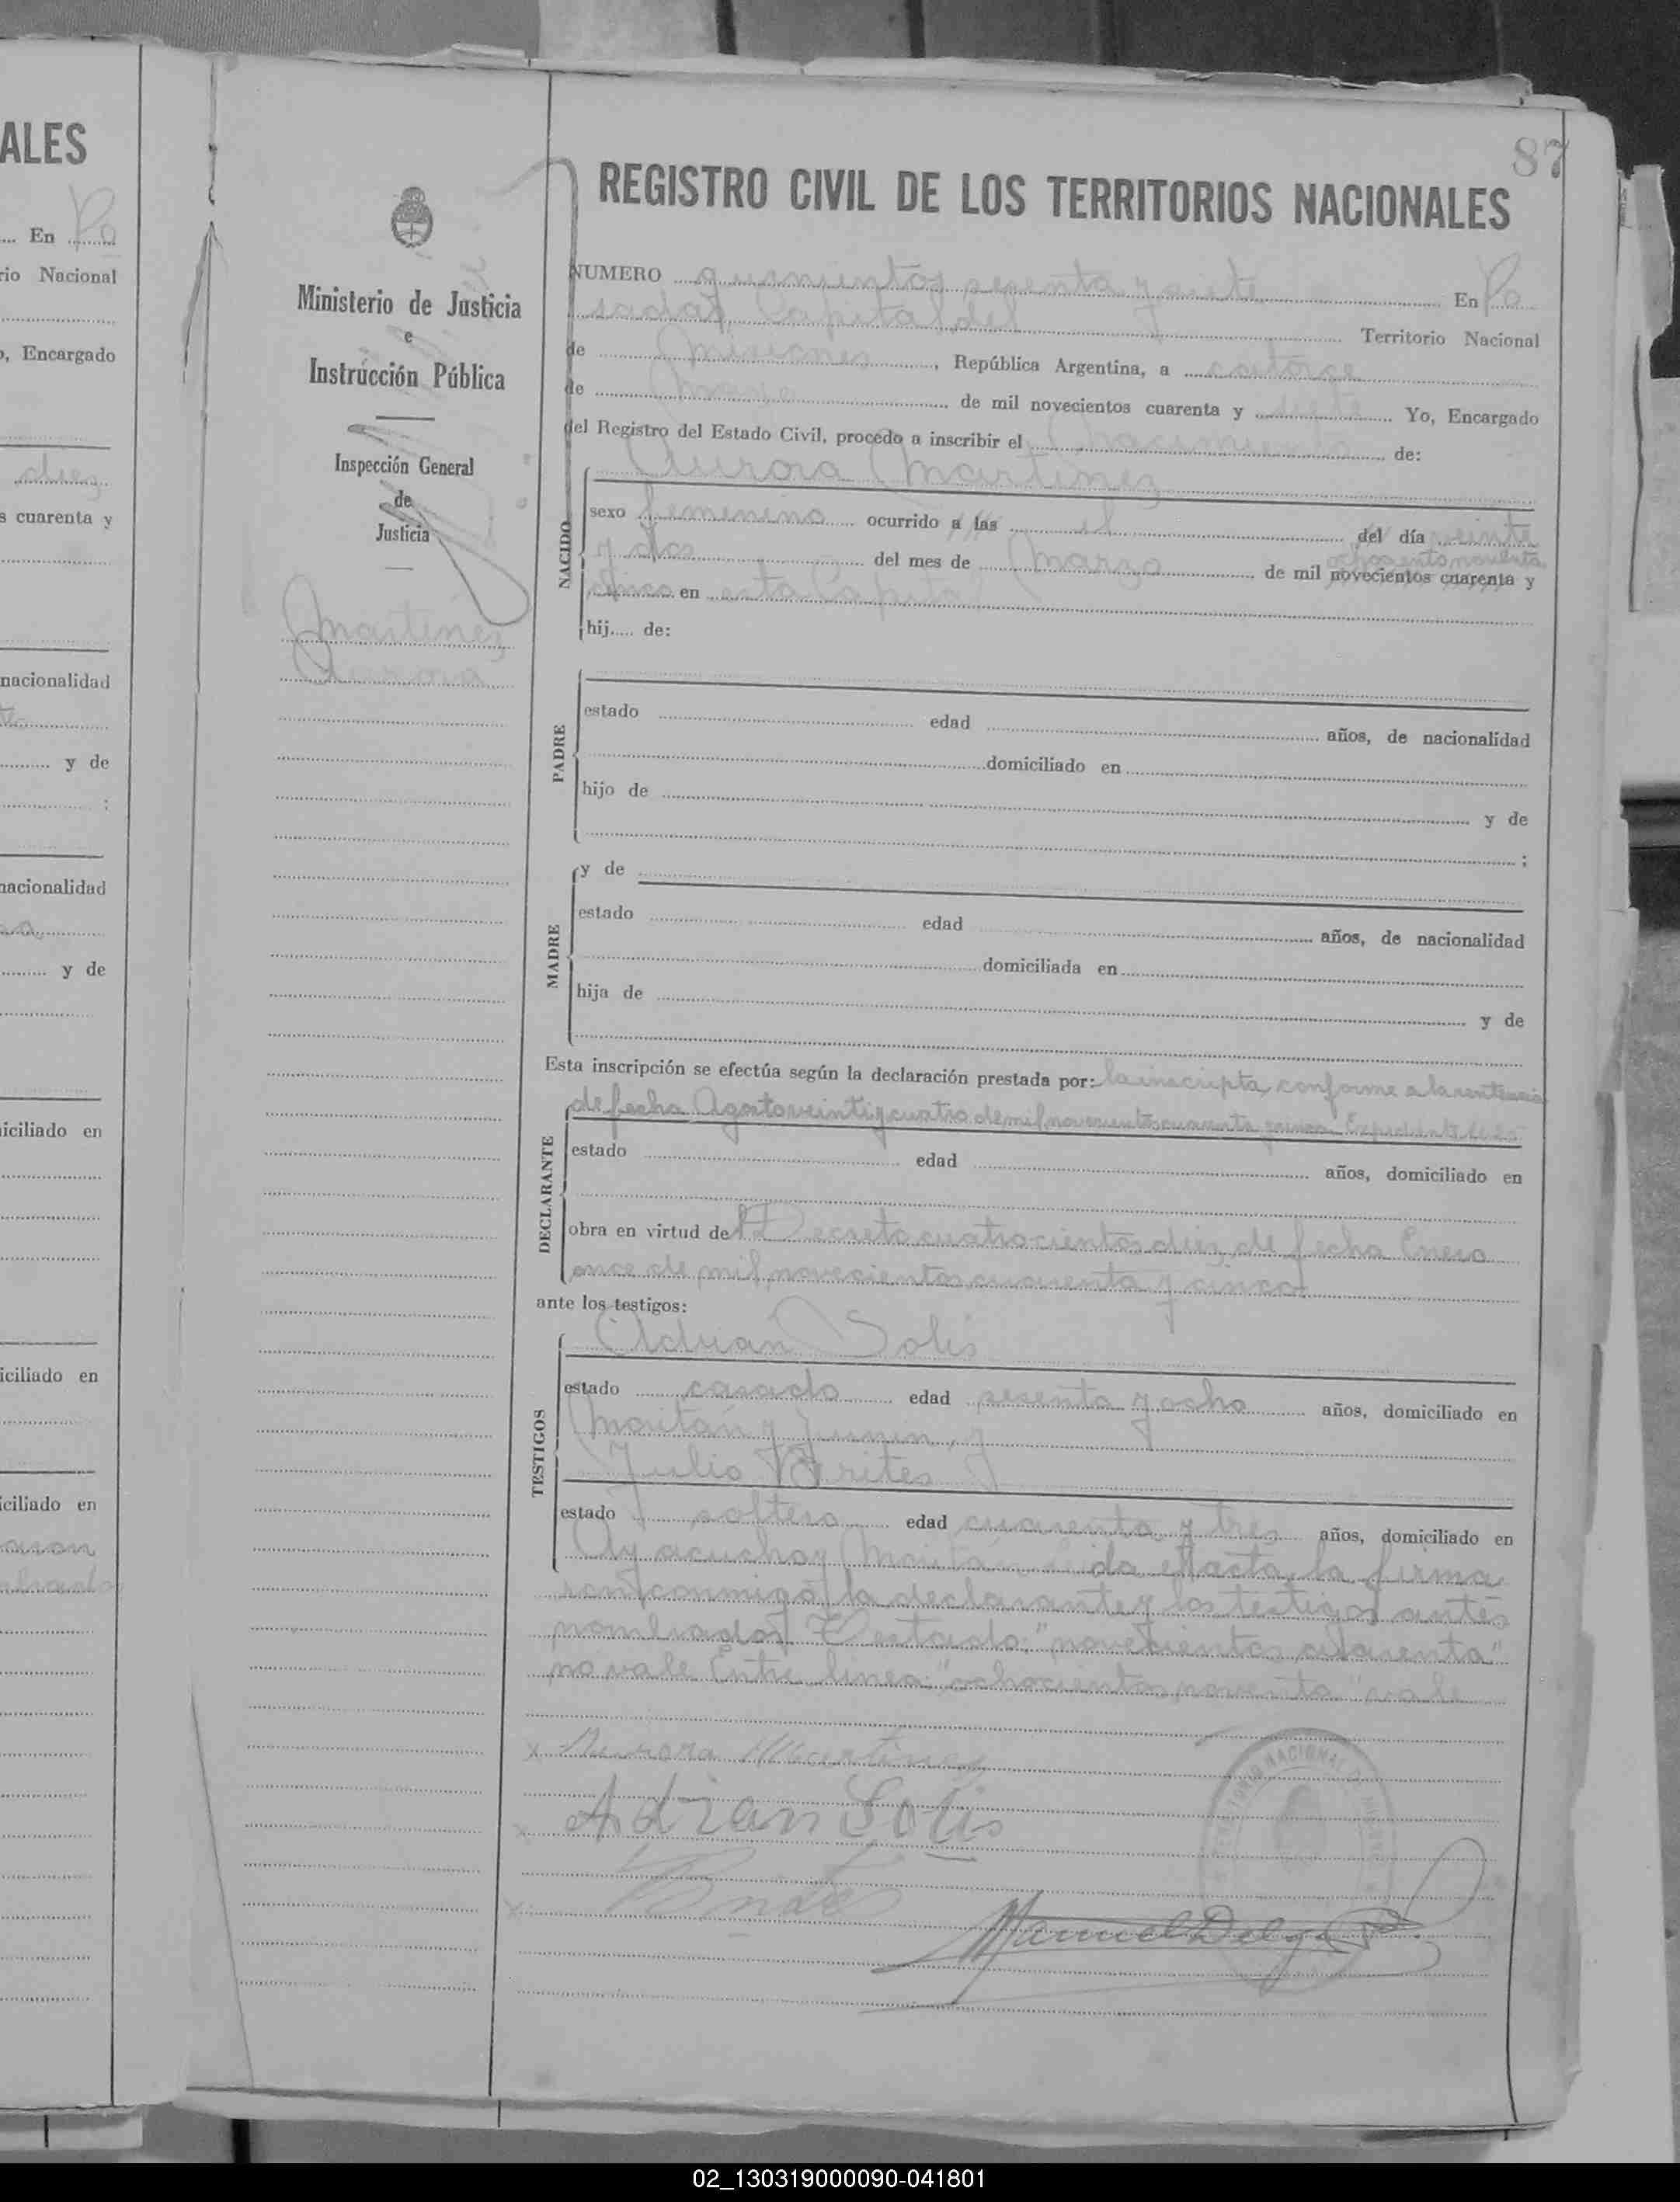 ALES
En Po
rio Nacional
o, Encargado
diez
s cuarenta y
nacionalidad
y de
;
nacionalidad
y de
iciliado en
iciliado en
iciliado en
87
REGISTRO CIVIL DE LOS TERRITORIOS NACIONALES
Ministerio de Justicia
e
Instrucción Pública
Inspección General
de
Justicia
Martinez
Aurora
NUMERO quinientos sesenta y siete En Po
sadas, Capital del Territorio Nacional
de Misiones, República Argentina, a catorce
de de mil novecientos cuarenta y siete Yo, Encargado
del Registro del Estado Civil, procedo a inscribir el nacimiento de:
Aurora Martinez
NACIDO
sexo femenino ocurrido a las el del día veinte
y dos del mes de Marzo de mil novecientos cuarenta y
ochocientos noventa
cinco en esta Capital
hij..... de:
PADRE
estado edad años, de nacionalidad
domiciliado en
hijo de y de
;
MADRE
y de
estado edad años, de nacionalidad
domiciliada en
hija de y de
Esta inscripción se efectúa según la declaración prestada por: la inscripta, conforme a la sentencia
de fecha Agosto veinti y cuatro de mil novecientos cuarenta y Expediente
DECLARANTE
estado edad años, domiciliado en
obra en virtud del Decreto cuatrocientos diez, de fecha Enero
once de mil novecientos cuarenta y cinco
ante los testigos:
TESTIGOS
Adrian Solis
estado casado edad sesenta y ocho años, domiciliado en
Maitán y Junin, y
Julio Brites
estado soltero edad cuarenta y tres años, domiciliado en
Ayacucho y Maitán Leida el acta, la firma
ron conmigo, la declarante y los testigos antes
nombrados. Testado: "novecientos cuarenta"
no vale. Entre linea: "ochocientos noventa" vale
x Aurora Martinez
x Adrian Solis
x Brites
Manuel Delg
NACIONAL
02_130319000090-041801